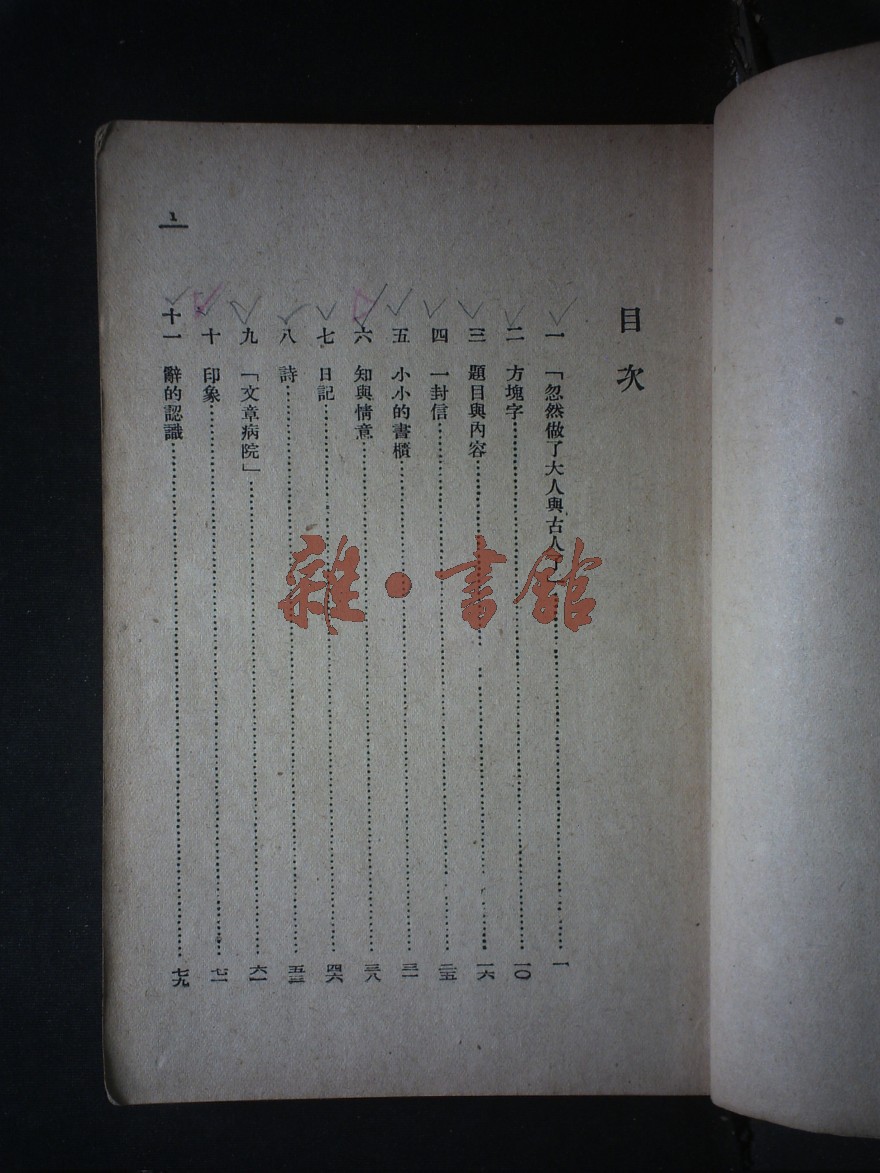 目次
一 「忽然做了大人與古人了」 一
二 方塊字 一〇
三 題目與內容 一六
四 一封信 二五
五 小小的書櫃 三一
六 知與情意 三八
七 日記 四六
八 詩 五三
九 「文章病院」 六一
十 印象 七一
十一 辭的認識 七九
1
雜・書館